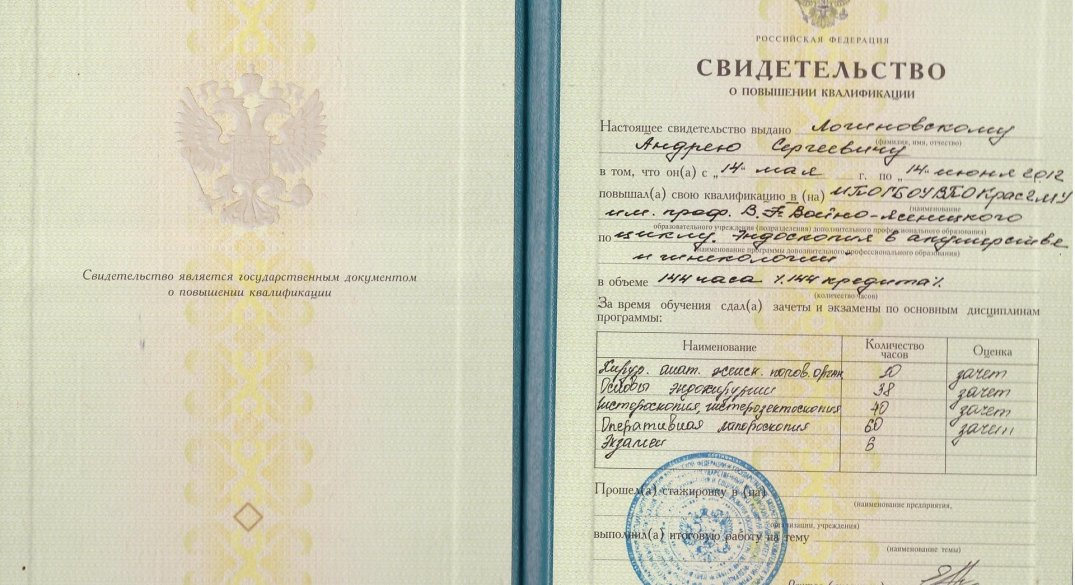 Свидетельство является государственным документом
о повышении квалификации
РОССИЙСКАЯ ФЕДЕРАЦИЯ
СВИДЕТЕЛЬСТВО
О ПОВЫШЕНИИ КВАЛИФИКАЦИИ
Настоящее свидетельство выдано Логиновскому
(фамилия, имя, отчество)
Андрею Сергеевичу
в том, что он(а) с „14" мая г. по „14" июня 2012
повышал(а) свою квалификацию в (на) ИПО ГБОУ ВПО КрасГМУ
(наименование
им. проф. В.Ф. Войно-Ясенецкого
образовательного учреждения (подразделения) дополнительного профессионального образования)
по циклу „Эндоскопия в акушерстве
(наименование программы дополнительного профессионального образования)
и гинекологии"
в объеме 144 часа /.144 кредита/.
(количество часов)
За время обучения сдал(а) зачеты и экзамены по основным дисциплинам
программы:
Наименование Количество часов Оценка
Хирур. анат. женск. полов. орган зачет
Основы эндохирургии 38 зачет
Гистероскопия, гистерозектоскопия 40 зачет
Оперативная лапороскопия 60 зачет
Экзамен 6
Прошел(а) стажировку в (на)
(наименование предприятия,
организации, учреждения)
выполнил(а) итоговую работу на тему
(наименование темы)